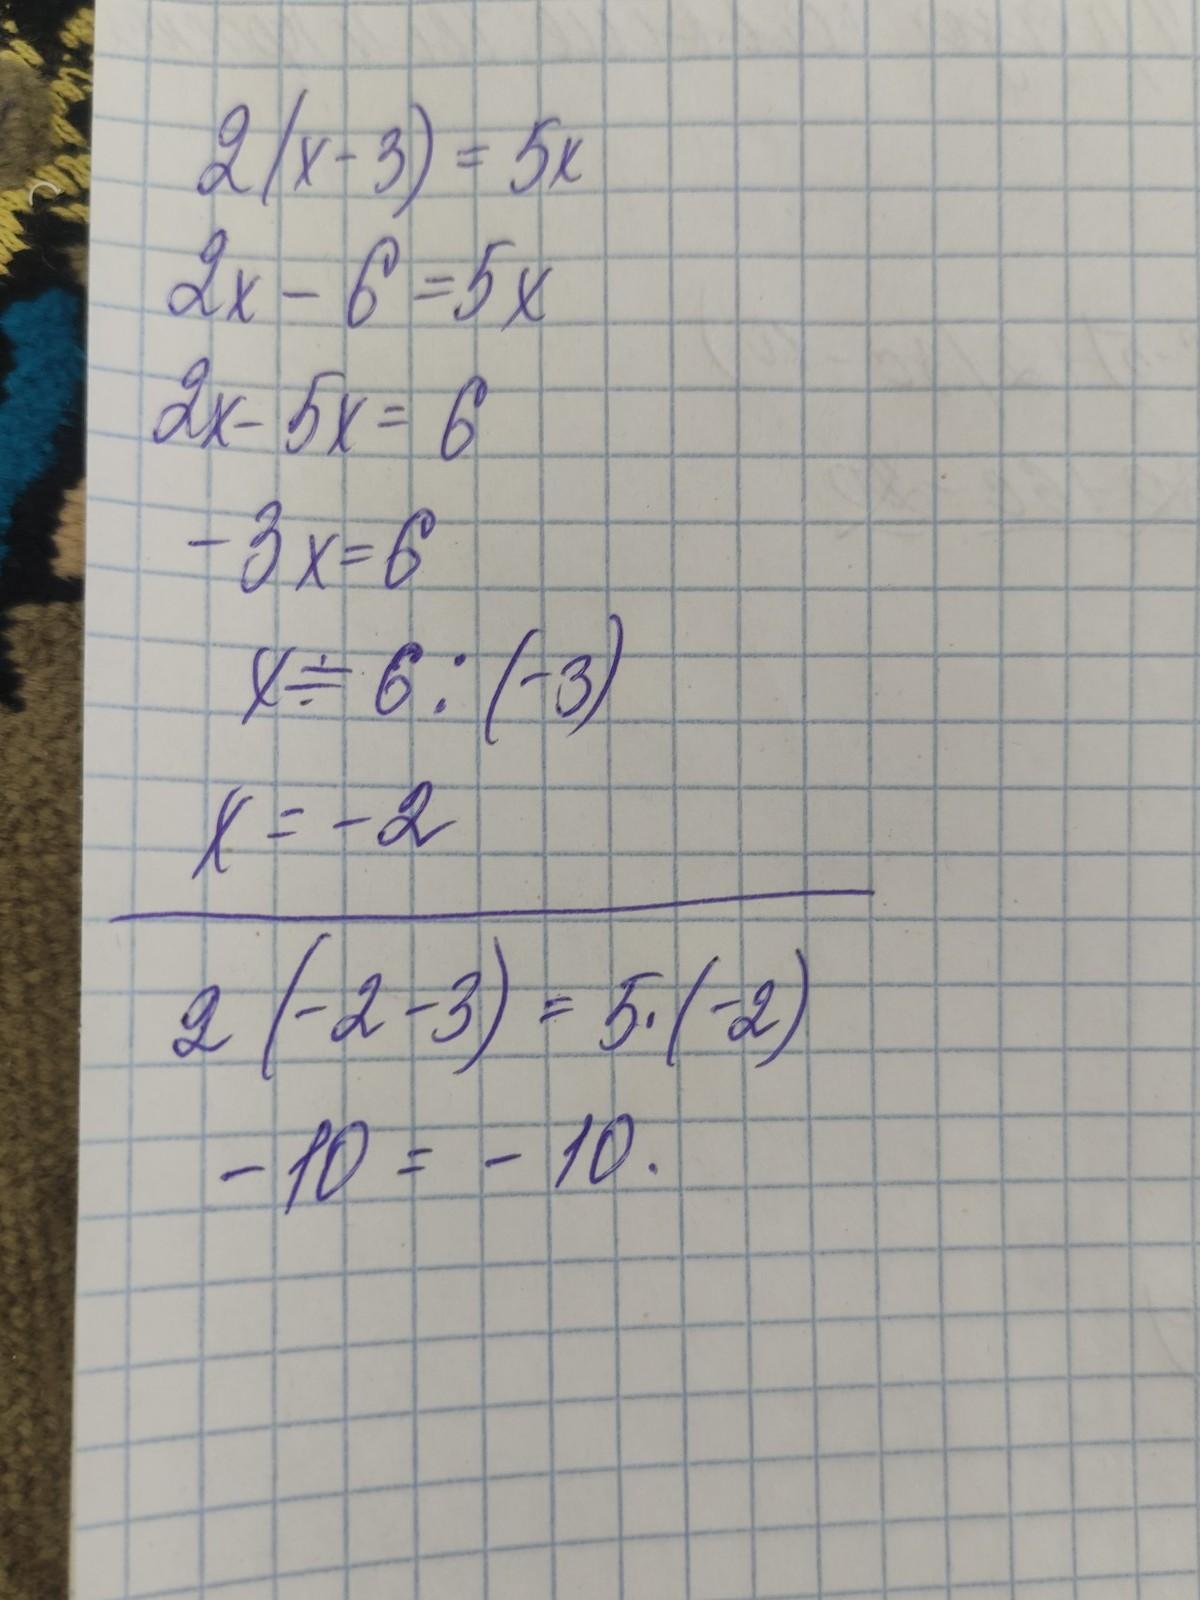 2(x-3) = 5x
2x - 6 = 5x
2x - 5x = 6
-3x = 6
x = 6 : (-3)
x = -2
2 (-2-3) = 5·(-2)
-10 = -10.